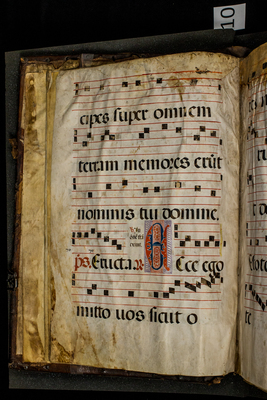 10
cipes super omnem
terram memores erūt
nominis tui domine.
ps. Eructa. R. Ecce ego
mitto vos sicut o